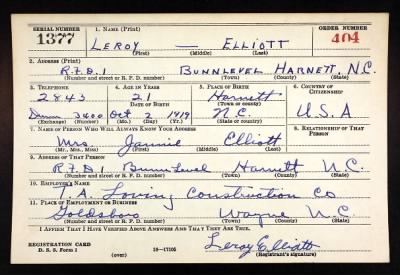 SERIAL NUMBER 1. NAME (Print) ORDER NUMBER
1377 LEROY — ELLIOTT 404
(First) (Middle) (Last)
2. ADDRESS (Print)
R.F.D.1 BUNNLEVEL HARNETT, N.C.
(Number and street or R. F. D. number) (Town) (County) (State)
3. TELEPHONE 4. AGE IN YEARS 5. PLACE OF BIRTH 6. COUNTRY OF CITIZENSHIP
2843 21 Harnett
DATE OF BIRTH (Town or county)
3400 Oct 2 1919 N.C. U.S.A
(Exchange) (Number) (Mo.) (Day) (Yr.) (State or country)
7. NAME OF PERSON WHO WILL ALWAYS KNOW YOUR ADDRESS 8. RELATIONSHIP OF THAT PERSON
Mrs. Jannie Elliott
(Mr., Mrs., Miss) (First) (Middle) (Last)
9. ADDRESS OF THAT PERSON
R.F.D.1 Bunnlevel Harnett N.C.
(Number and street or R. F. D. number) (Town) (County) (State)
10. EMPLOYER'S NAME
T.A. Loving Construction Co
11. PLACE OF EMPLOYMENT OR BUSINESS
Goldsboro Wayne N.C.
(Number and street or R. F. D. number) (Town) (County) (State)
I AFFIRM THAT I HAVE VERIFIED ABOVE ANSWERS AND THAT THEY ARE TRUE.
REGISTRATION CARD Leroy Elliott
D. S. S. Form 1 (over) 16—17105 (Registrant's signature)